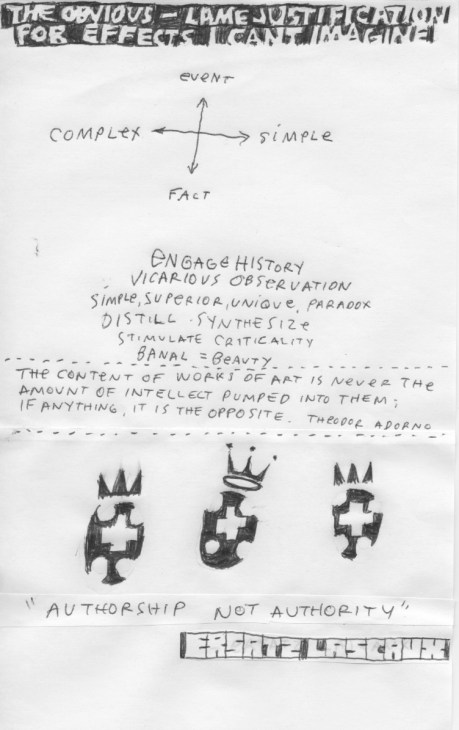 THE OBVIOUS = LAME JUSTIFICATION
FOR EFFECTS I CANT IMAGINE
EVENT
COMPLEX
SIMPLE
FACT
ENGAGE HISTORY
VICARIOUS OBSERVATION
SIMPLE, SUPERIOR, UNIQUE, PARADOX
DISTILL . SYNTHESIZE
STIMULATE CRITICALITY
BANAL = BEAUTY
THE CONTENT OF WORKS OF ART IS NEVER THE
AMOUNT OF INTELLECT PUMPED INTO THEM;
IF ANYTHING, IT IS THE OPPOSITE. THEODOR ADORNO
"AUTHORSHIP NOT AUTHORITY"
ERSATZ LASCAUX